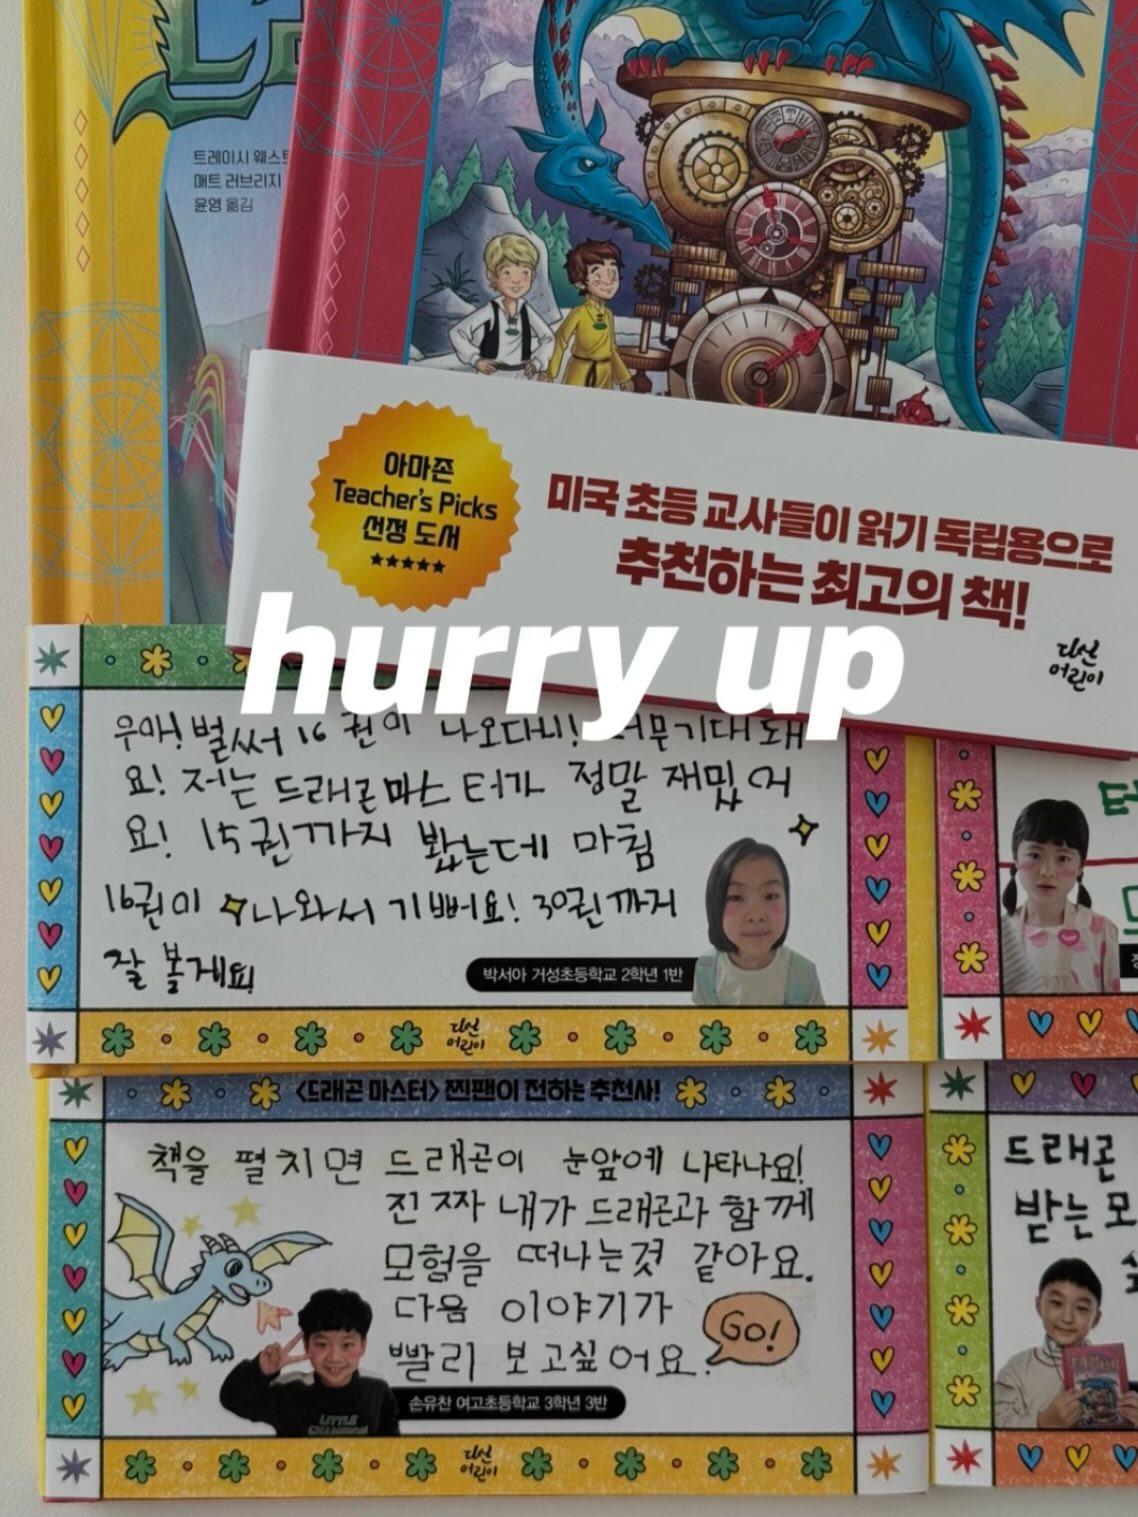 트레이시 웨스트
매트 러브리지
윤영 옮김
아마존
Teacher's Picks
선정 도서
미국 초등 교사들이 읽기 독립용으로
추천하는 최고의 책!
다산
어린이
hurry up
우와! 벌써 16 권이 나오다니! 너무 기대돼
요! 저는 드래곤마스터가 정말 재밌어
요! 15권까지 봤는데 마침
16권이 나와서 기뻐요! 30권까지
잘 볼게요!
박서아 거성초등학교 2학년 1반
다산
어린이
<드래곤 마스터> 찐팬이 전하는 추천사!
책을 펼치면 드래곤이 눈앞에 나타나요!
진짜 내가 드래곤과 함께
모험을 떠나는것 같아요.
다음 이야기가
빨리 보고싶어요.
Go!
LITTLE
CHAMPION
손유찬 여고초등학교 3학년 3반
다산
어린이
드래곤
받는 모